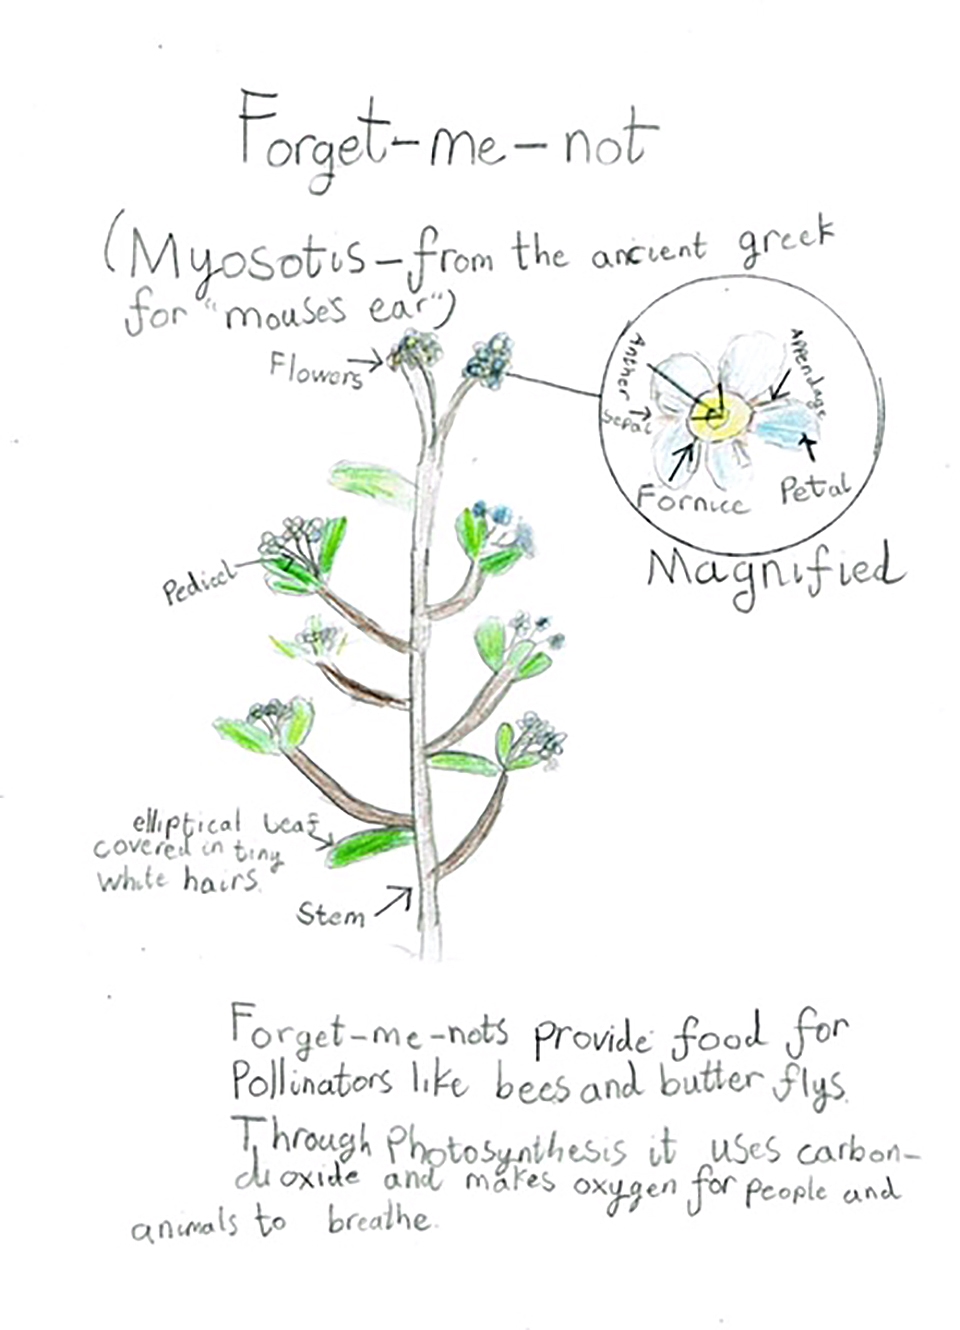 Forget-me-not
(Myosotis-from the ancient greek
for "mouse's ear")
Flowers
Anther
Appendage
Sepal
Fornice
Petal
Magnified
Pedicel
elliptical Leaf
covered in tiny
white hairs.
Stem
Forget-me-nots provide food for
Pollinators like bees and butter flys.
Through Photosynthesis it uses carbon-
dioxide and makes oxygen for people and
animals to breathe.